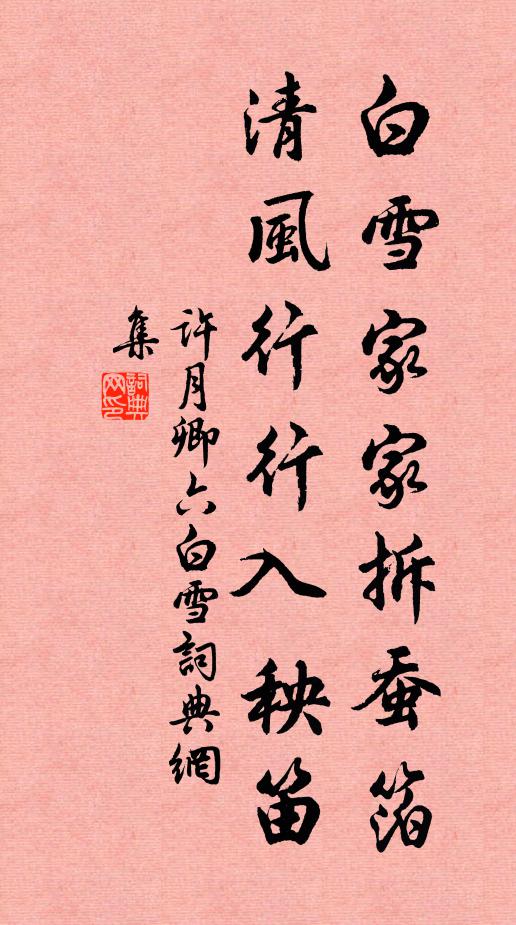 白雪家家拆蚕箔
清風行行入秧笛
許月卿六白雪詞典網
集
詞典网印